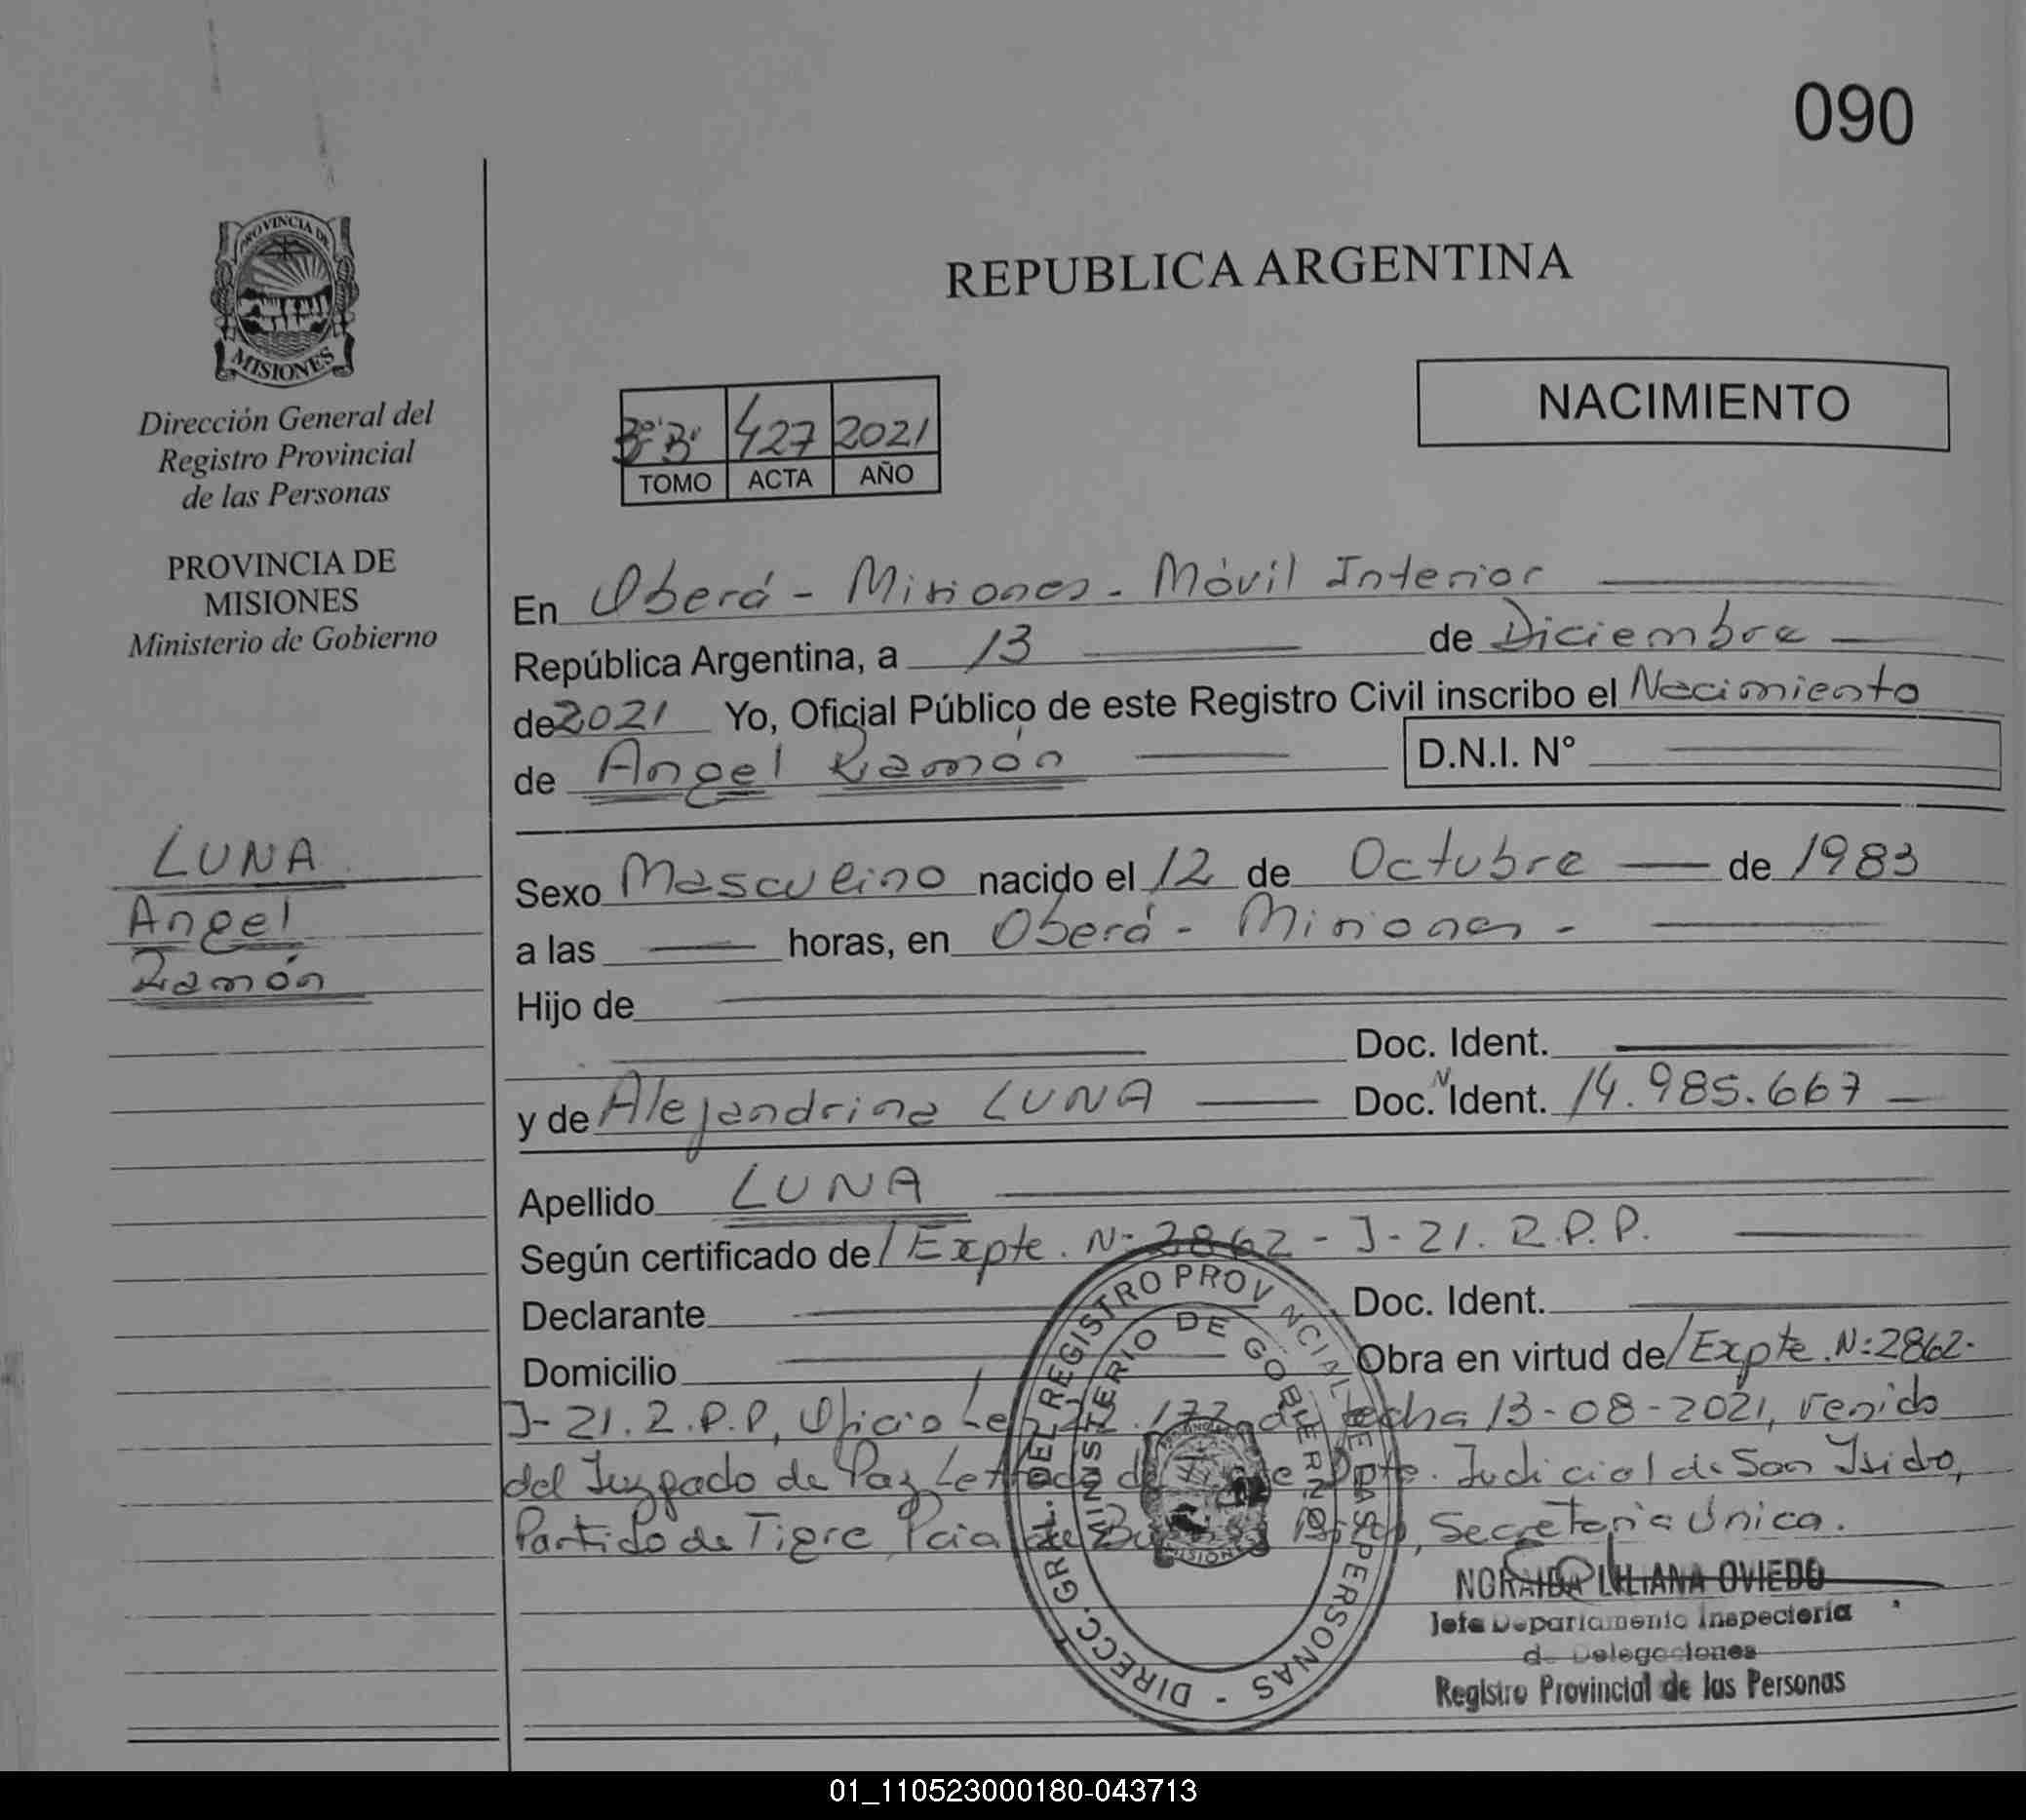 090
PROVINCIA DE
MISIONES
Dirección General del
Registro Provincial
de las Personas
PROVINCIA DE
MISIONES
Ministerio de Gobierno
LUNA
Angel
Ramón
REPUBLICA ARGENTINA
NACIMIENTO
427 2021
TOMO ACTA AÑO
En Oberá - Misiones - Móvil Interior
República Argentina, a 13 de Diciembre
de 2021 Yo, Oficial Público de este Registro Civil inscribo el Nacimiento
de Angel Ramón D.N.I. N°
Sexo Masculino nacido el 12 de Octubre de 1983
a las horas, en Oberá - Misiones -
Hijo de
Doc. Ident.
y de Alejandrina LUNA Doc. Ident. 14.985.667
Apellido LUNA
Según certificado de/ Expte. N: 2862 - J-21. R.P.P.
Declarante Doc. Ident.
Domicilio Obra en virtud de/ Expte. N: 2862-
J-21.R.P.P, Oficio Ley 22.172 de fecha 13-08-2021, venido
del Juzgado de Paz Letrado de Tigre Dpto. Judicial de San Isidro,
Partido de Tigre, Pcia de Buenos Aires, Secretaría Única.
DIRECC. GRAL. DEL REGISTRO PROVINCIAL DE LAS PERSONAS -
MINISTERIO DE GOBIERNO
MISIONES
NORAIDA LILIANA OVIEDO
Jefe Departamento Inspectoría
de Delegaciones
Registro Provincial de las Personas
01_110523000180-043713